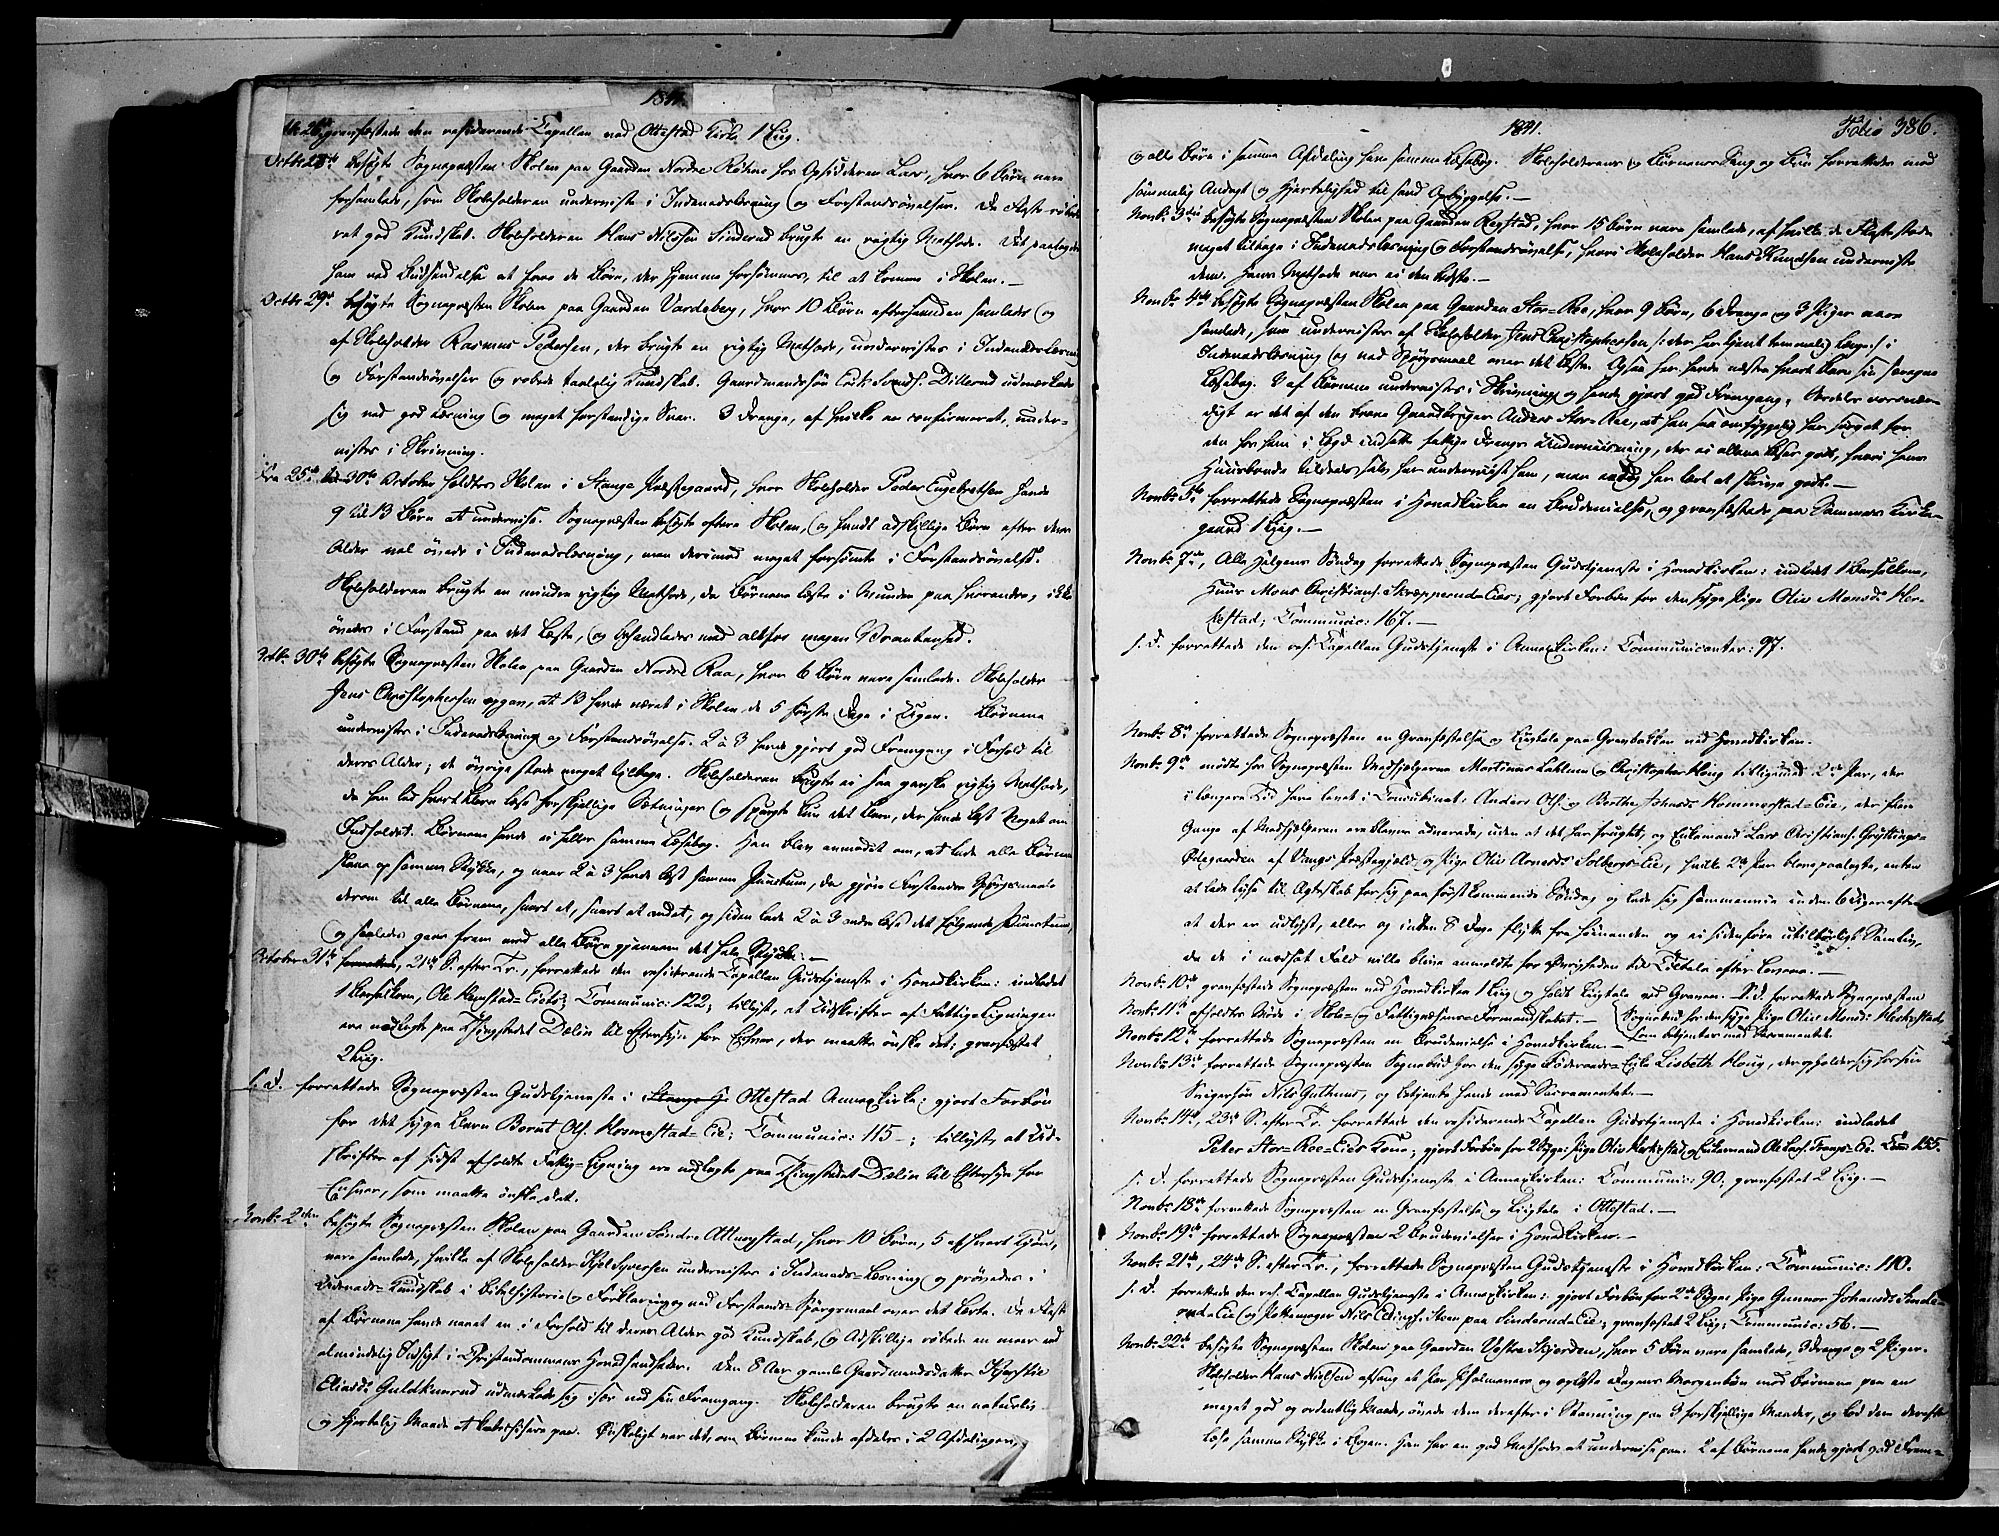 1841.
Octbr 26de, græsfæstede den residerende Capellan ved Ottestad Kirke 1 Liig.
Octbr 28de besøgte Sognepræsten Skolen paa Gaarden Nordre Røhne hos Opsidderen Lars, hvor 6 Børn vare
forsamlede, som Skoleholderen underviste i Indenadslæsning og Forstandsøvelser. De fleste røbede
ret god Kundskab. Skoleholderen Hans Nilssen Sinderud brugte en rigtig Methode. Det paalagdes
ham ved Budsendelse at faae de Børn, der hjemme forsømmes, til at komme i Skolen.—
Octbr 29de besøgte Sognepræsten Skolen paa Gaarden Vardeberg, hvor 10 Børn efterhaanden samledes og
af Skoleholder Rasmus Pedersen, der brugte en rigtig Methode, undervistes i Indenadslæsning
og Forstandsøvelser og røbede taalelig Kundskab. Gaardmandssøn Erik Svends. Dillerud udmærkede
sig ved god Læsning og meget forstandige Svar. 3 Drenge, af hvilke en confirmeret, under-
vistes i Skrivning.
Fra 25de til 30te October holdtes Skolen i Stange Præstegaard, hvor Skoleholder Peder Engebretsen havde
9 til 13 Børn at undervise. Sognepræsten besøgte oftere Skolen, og fandt adskillige Børn efter deres
Alder vel øvede i Indenadslæsning, men derimod meget forsømte i Forstandsøvelse.
Skoleholderen brugte en mindre rigtig Methode, da Børnene læste i Munden paa hverandre, ikke
øvedes i Forstand paa det Læste, og behandledes med altfor megen Vrantenhed.
Octbr 30te besøgte Sognepræsten Skolen paa Gaarden Nordre Raa, hvor 6 Børn vare samlede. Skoleholder
Jens Christophersen opgav, at 13 havde været i Skolen de 5 første Dage i Ugen. Børnene
undervistes i Indenadslæsning og Forstandsøvelse. 2 à 3 havde gjort god Fremgang i Forhold til
deres Alder; de øvrige stode meget tilbage. Skoleholderen brugte ei saa ganske rigtig Methode,
da han lod hvert Barn læse forskjellige Sætninger og spurgte kun det Barn, der havde læst Noget om
Indholdet. Børnene havde ei heller samme Læsebog. Han blev anmodet om, at lade alle Børnene
slaae op samme Stykke, og naar 2 à 3 havde læst samme Punctum, da gjøre Forstands Spørgsmaale
derom til alle Børnene, snart et, snart et andet, og siden lade 2 à 3 andre læse det følgende Punctum,
og saaledes gaae frem med alle Børn gjennem det hele Stykke.—
October 31te forrettede, 21de S. efter Tr., forrettede den residerende Capellan Gudstjeneste i Hovedkirken: indledet
1 Barselkone, Ole Hemstad-Eiets; Communic: 122; tillyst, at Udskrifter af Fattigligningen
ere nedlagte paa Thingstedet Dælin til Eftersyn for Enhver, der maatte ønske det; græsfæstet
2 Liig.
S. D. forrettede Sognepræsten Gudstjeneste i Stange H Ottestad Annexkirke: gjort Forbøn
for det syge Barn Bernt Ols. Hosmestad-Eie; Communic: 115—; tillyst, at Ud-
skrifter af sidst afholdte Fattig-Ligning ere nedlagte paa Thingstedet Dælin til Eftersyn for
Enhver, som maatte ønske det.
Novbr 2den besøgte Sognepræsten Skolen paa Gaarden Søndre Attingstad, hvor 10 Børn, 5 af hvert Kjøn,
vare samlede, hvilke af Skoleholder Kjel Syversen undervistes i Indenads-Læsning og prøvedes i
Udenads-Kundskab i Bibelhistorie og Forklaring og ved Forstands-Spørgsmaal over det Læste. De fleste
af Børnene havde naaet en i Forhold til deres Alder god Kundskab, og Adskillige røbede en meer end
almindelig Indsigt i Christendommens Hovedsandheder. Den 8 Aar gamle Gaardmandsdatter Kjerstie
Eliasd: Guldkuusrud udmærkede sig især ved sin Fremgang. Skoleholderen brugte en naturlig
og hjertelig Maade at katechisere paa. Ønskeligt var det, om Børnene kunde afdeles i 2 Afdelinger,
1841.
Folio 386.
og alle Børn i samme Afdeling have samme Læsebog. Skoleholderens og Børnenes Sang og Bøn forrettedes med
sømmelig Andagt og Hjertelighed til sand Opbyggelse.—
Novbr 3die besøgte Sognepræsten Skolen paa Gaarden Ragstad, hvor 15 Børn vare samlede, af hvilke de fleste stode
meget tilbage i Indenadslæsning og Forstandsøvelse, hvori Skoleholder Hans Knudsen underviste
dem. Hans Methode var ei den bedste.—
Novbr 4de besøgte Sognepræsten Skolen paa Gaarden Stor-Ree, hvor 9 Børn, 6 Drenge og 3 Piger vare
samlede, som undervistes af Skoleholder Jens Christophersen /: der har tjent temmelig længe :/ i
Indenadslæsning og ved Spørgsmaal over det Læste. Ogsaa her havde næsten hvert Barn sin særegne
Læsebog. 2 af Børnene undervistes i Skrivning og havde gjort god Fremgang. Særdeles værdi-
digt er det af den brave Gaardbruger Anders Stor-Ree, at han saa omhyggelig har sørget for
den hos ham i Lægd indsatte fattige Drengs Underviisning, der ei allene læser godt, hvori hans
Huusbonde tildeels selv har underviist ham, men endog har lært at skrive godt.—
Novbr 5te forrettede Sognepræsten i Hovedkirken en Brudevielse, og græsfæstede paa Sammes Kirke-
gaard 1 Liig.—
Novbr 7de, Alle Helgens Søndag forrettede Sognepræsten Gudstjeneste i Hovedkirken: indledet 1 Barselkone,
Huusm. Mons Christians. Skræpperud-Eie; gjort Forbøn for den syge Pige Olive Monsd: Her-
kestad; Communic: 167.—
S. D. forrettede den res. Capellan Gudstjeneste i Annexkirken: Communicanter: 97.
Novbr 8de forrettede Sognepræsten en Græsfæstelse og Liigtale paa Gravbakken ved Hovedkirken.
Novbr 9de mødte hos Sognepræsten Medhjælperne Martinus Lahlum og Christopher Houg tilligemed 2de Par, der
i længere Tid have levet i Concubinat: Anders Ols. og Berthe Johansd: Hommerstad-Eie, der flere
Gange af Medhjælperen ere blevne advarede, uden at det har frugtet, og Enkemand Lars Christians. Gryttings-
Ødegaarden af Vangs Præstegjeld og Pige Olive Arnesd: Solbergs-Eie, hvilke 2de Par bleve paalagte, enten
at lade lyse til Ægteskab for sig paa førstkommende Søndag og lade sig sammenvie inden 6 Uger efter
at der er udlyst, eller og inden 8 Dage flytte fra hinanden og ei sidenføre utilbørligt Samliv,
da de i modsat Fald ville blive anmeldte for Øvrigheden til Tiltale efter Lovene.—
Novbr 10de græsfæstede Sognepræsten ved Hovedkirken 1 Liig og holdt Liigtale ved Graven.— S. D. forrettede Sognepræsten
Novbr 11te afholdtes Møde i Skole- og Fattigvæsens-Formandskabet.— Sognebud hos den syge Pige Olive Monsd: Herkestad,
Novbr 12te forrettede Sognepræsten en Brudevielse i Hovedkirken.— som betjentes med Sacramentet.
Novbr 13de forrettede Sognepræsten Sognebud hos den syge Føderaads-Enke Lisbeth Houg, der opholder sig hos sin
Svigersøn Nils Guthuus, og betjente hende med Sacramentet.—
Novbr 14de, 23de S. efter Tr. forrettede den residerende Capellan Gudstjeneste i Hovedkirken: indledet
Peter Stor-Ree-Eies Kone; gjort Forbøn for 2 Syge: Pige Olive Herkestad og Enkemand Ole Lars. Trangs-Eie. Com 155.
S. D. forrettede Sognepræsten Gudstjeneste i Annexkirken: Communic: 90. græsfæstet 2 Liig.—
Novbr 18de forrettede Sognepræsten en Græsfæstelse og Liigtale i Ottestad.—
Novbr 19de forrettede Sognepræsten 2 Brudevielser i Hovedkirken.—
Novbr 21de, 24de S. efter Tr., forrettede Sognepræsten Gudstjeneste i Hovedkirken: Communic: 110.
S. D. forrettede den res. Capellan Gudstjeneste i Annexkirken: gjort Forbøn for 2de Syge: Pige Gunnor Johansd: Sinde-
rud-Eie og Pottemager Nils Edings. Hven paa Sinderud-Eie; græsfæstet 2 Liig; Communic: 56.—
Novbr 22de besøgte Sognepræsten Skolen paa Gaarden Vestre Skjerden, hvor 5 Børn vare samlede, 3 Drenge og 2 Piger.
Skoleholder Hans Nielsen afsang et Par Psalmevers og oplæste Dagens Morgenbøn med Børnene paa en
meget god og ordentlig Maade, øvede dem derefter i Stavning paa 3 forskjellige Maader, og lod dem derefter
læse samme Stykke i Bogen. Han har en god Methode at undervise paa. 2 af Børnene havde gjort god Frem-